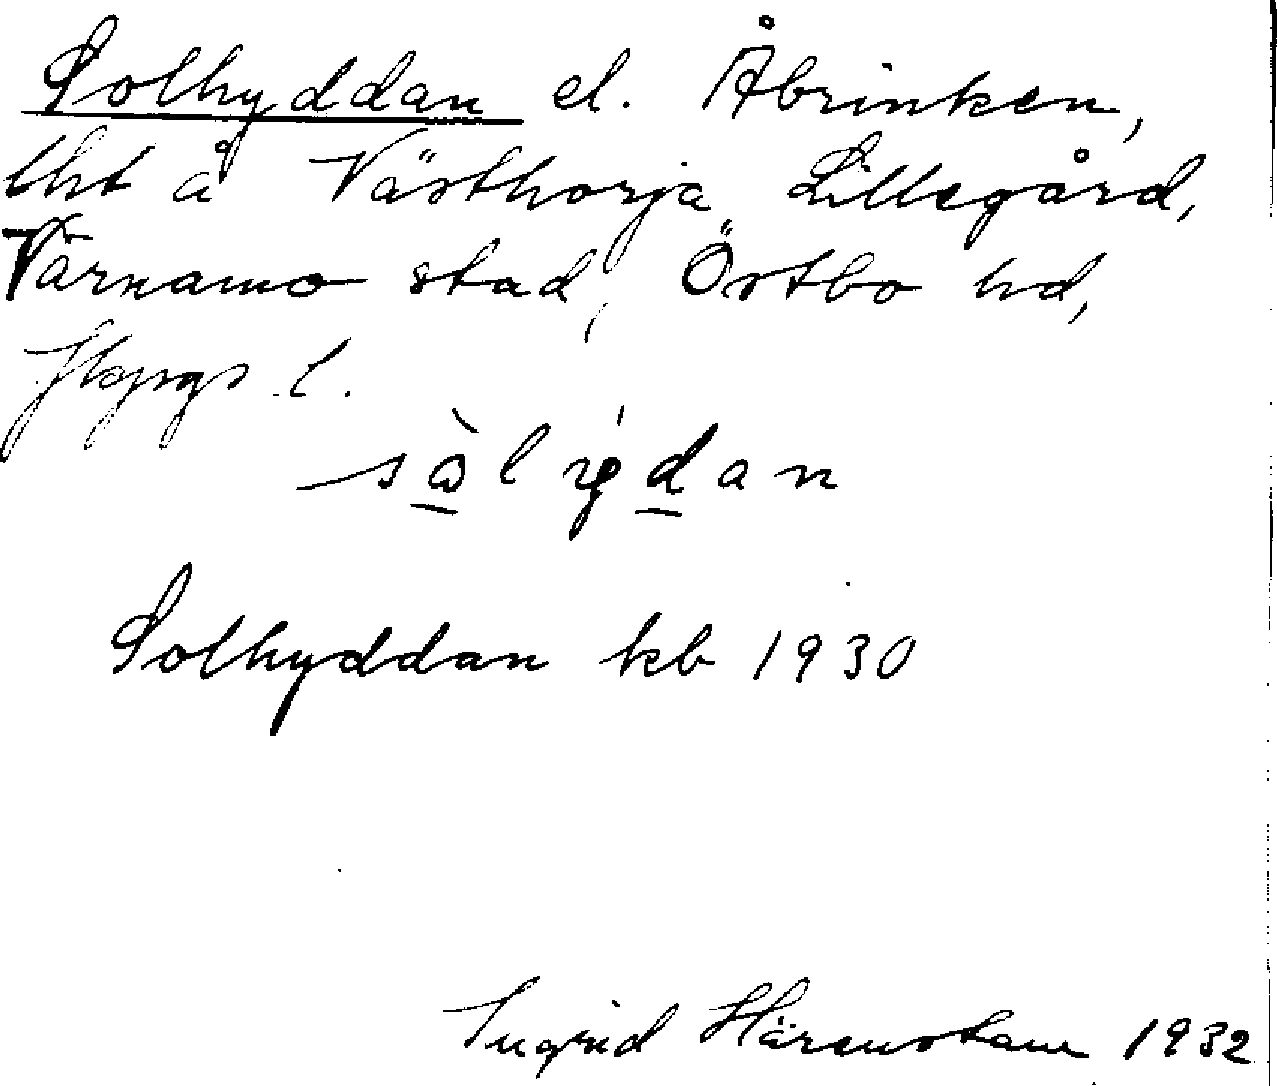 Solhyddan el. Åbrinken,
lht å Västhorja Lillegård,
Värnamo stad, Östbo hd,
Jkpgs l.
Solhyddan kb 1930
Ingrid Härenstam 1932